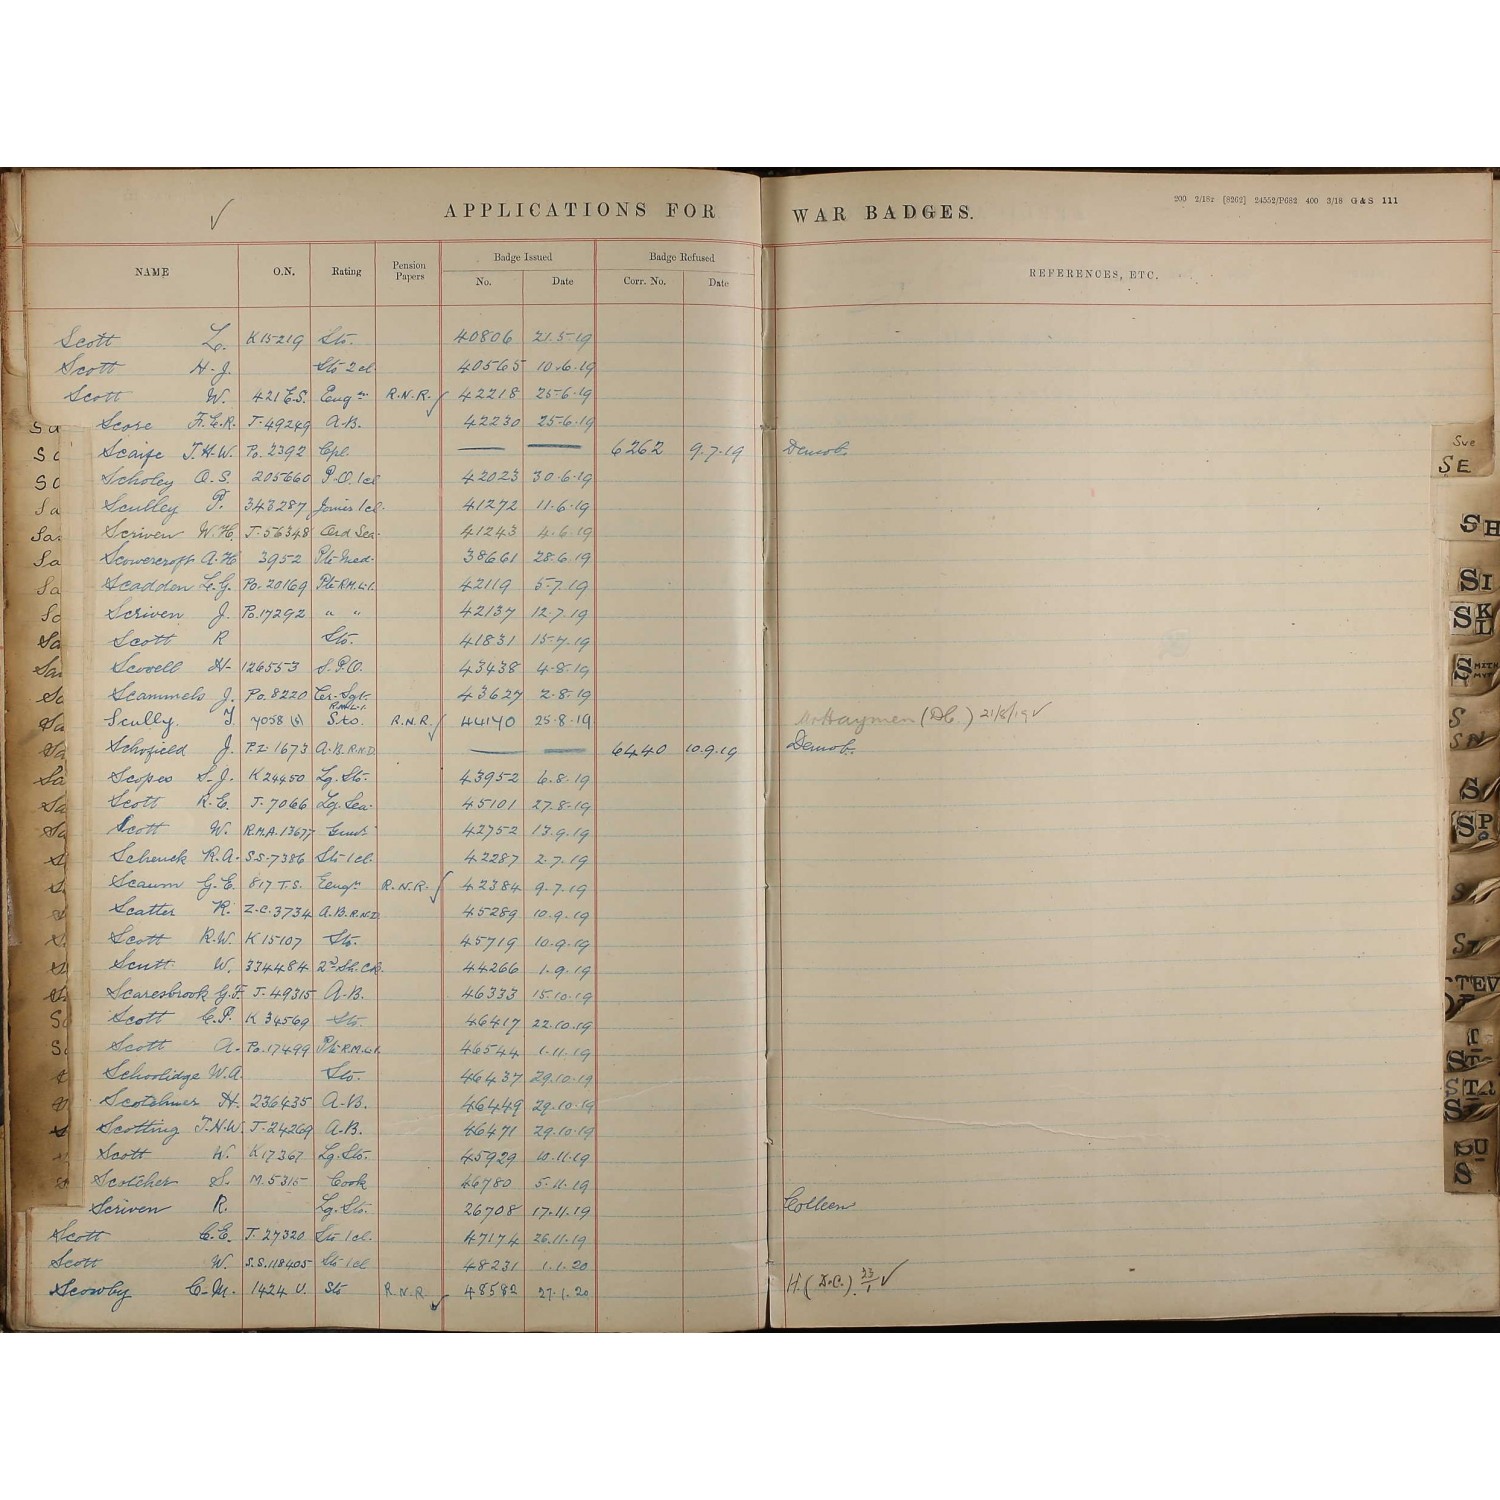 APPLICATIONS FOR WAR BADGES.
200 2/18z [8262] 24552/P682 400 3/18 G & S 111
NAME O.N. Rating Pension Papers Badge Issued Badge Refused REFERENCES, ETC.
No. Date Corr. No. Date
Scott L. K15219 Sto. 40806 21.5.19
Scott H.J. Sto 2cl. 40565 10.6.19
Scott W. 421 E.S. R.N.R. 42218 25.6.19
Score F.E.R. J.49249 A.B. 42230 25.6.19
Scaife J.H.W. Po.2392 Cpl. — — 6262 9.7.19 Demob.
Scholey O.S. 205660 P.O.1cl 42023 30.6.19
Sculley P. 343287 1cl. 41272 11.6.19
Scriven W.H. J.56348 Ord Sea. 41243 4.6.19
Scowcroft A.H 3952 Pte Med. 38661 28.6.19
Scadden L.G. Po.20169 Pte R.M.L.I. 42119 5.7.19
Scriven J. Po.17292 " " 42137 12.7.19
Scott R Sto. 41831 15.7.19
Scovell H. 126553 S.P.O. 43438 4.8.19
Scammels J. Po.8220 Cr. Sgt. R.M.L.I. 43627 2.8.19
Scully. J 7058 (S) Sto. R.N.R. 44170 25.8.19 Mr Haymen (DC.) 21/8/19 ✓
Schofield J. T.Z.1673 A.B. R.N.D — — 6440 10.9.19 Demob.
Scopes S.J. K24450 Lg. Sto. 43952 6.8.19
Scott R.E. J.7066 Lg. Sea. 45101 27.8.19
Scott W. R.M.A.13677 Gunr 42752 13.9.19
Schenck R.A. S.S.7386 Sto 1cl. 42287 2.7.19
Scaum G.E. 817 T.S. R.N.R. 42384 9.7.19
Scatter R. Z.C.3734 A.B. R.N.D 45289 10.9.19
Scott R.W. K15107 Sto. 45719 10.9.19
Scutt W. 334484 44266 1.9.19
Scaresbrook G.F. J.49315 A.B. 46333 15.10.19
Scott C.P. K34569 Sto. 46417 22.10.19
Scott A. Po.17499 Pte R.M.L.I. 46544 1.11.19
Schoolidge W.A. Sto. 46437 29.10.19
Scotchmer H. 236435 A.B. 46449 29.10.19
Scotting J.N.W. J.24269 A.B. 46471 29.10.19
Scott W. K17367 Lg. Sto. 45929 10.11.19
Scotcher S. M.5315 Cook 46780 5.11.19
Scriven R. Lg. Sto. 26708 17.11.19 Colleen
Scott C.E. J.27320 Sto 1cl. 47174 26.11.19
Scott W. S.S.118405 Sto 1cl 48231 1.1.20
Scowby C.M. 1424 U. Sto R.N.R 48582 27.1.20 H. (D.C.). 23/1 ✓
SE
SH
SI
SK
SL
SMITH
SP
STEV
STA
SU